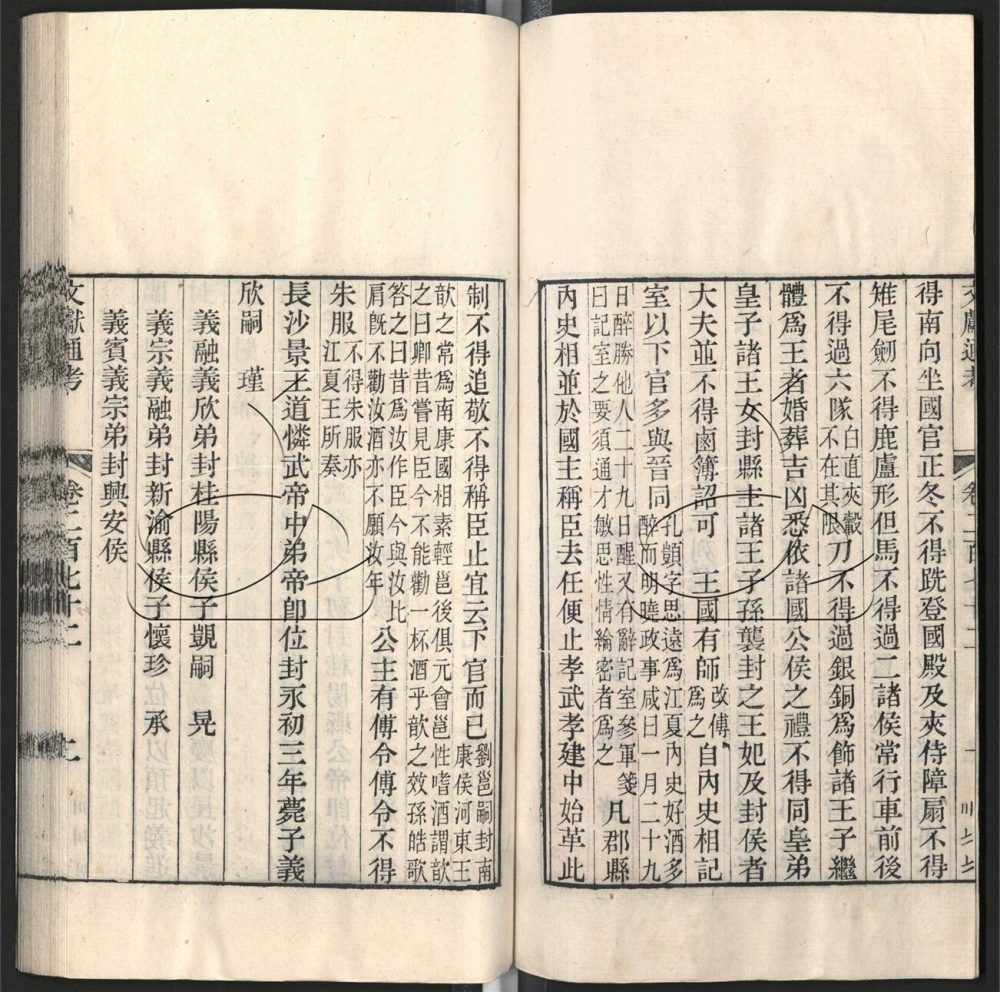 得南向坐國官正冬不得跣登國殿及夾侍障扇不得
雉尾劒不得鹿盧形但馬不得過二諸侯常行車前後
不得過六隊白直夾轂不在其限刀不得過銀銅爲飾諸王子繼
體爲王者婚葬吉凶悉依諸國公侯之禮不得同皇弟
皇子諸王女封縣主諸王子孫襲封之王妃及封侯者
大夫並不得鹵簿詔可 王國有師改傅爲之自內史相記
室以下官多與晉同孔顗字思遠爲江夏內史好酒多醉而明曉政事咸曰一月二十九
日醉勝他人二十九日醒又有辭記室參軍箋曰記室之要須通才敏思性情綸密者爲之凡郡縣
內史相並於國主稱臣去任便止孝武孝建中始革此
制不得追敬不得稱臣止宜云下官而已劉邕嗣封南康侯河東王
歆之常爲南康國相素輕邕後俱元會邕性嗜酒謂歆之曰卿昔嘗見臣今不能勸一杯酒乎歆之效孫皓歌
答之曰昔爲汝作臣今與汝比肩旣不勸汝酒亦不願汝年公主有傅令傅令不得
朱服不得朱服亦江夏王所奏
長沙景王道憐武帝中弟帝卽位封永初三年薨子義
欣嗣 瑾
義融義欣弟封桂陽縣侯子覬嗣 晃
義宗義融弟封新渝縣侯子懷珍 承
義賓義宗弟封興安侯
文獻通考 卷二百七十二